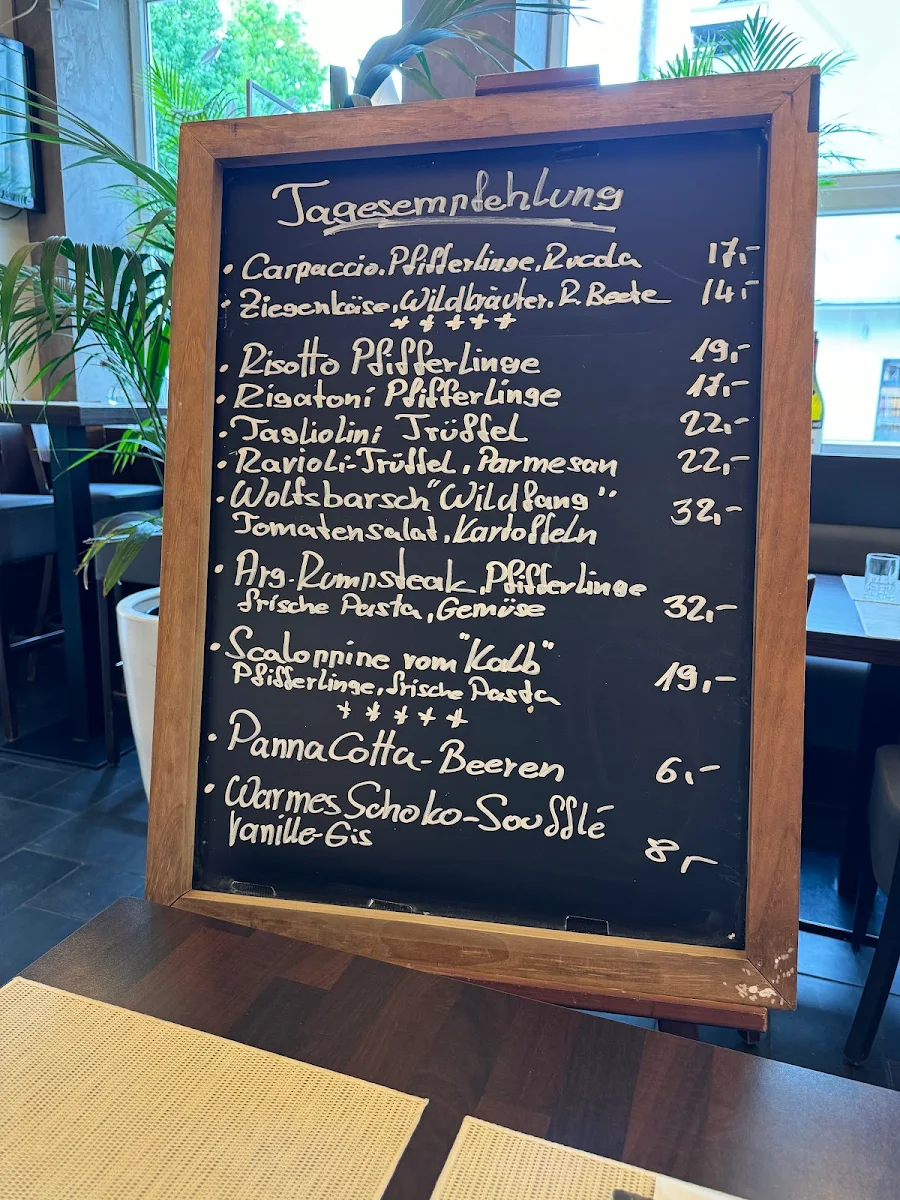 Tagesempfehlung
• Carpaccio, Pfifferlinge, Rucola 17,-
• Ziegenkäse, Wildkräuter, R. Beete 14,-
* * * * *
• Risotto Pfifferlinge 19,-
• Rigatoni Pfifferlinge 17,-
• Tagliolini Trüffel 22,-
• Ravioli-Trüffel, Parmesan 22,-
• Wolfsbarsch "Wildfang" 32,-
Tomatensalat, Kartoffeln
• Arg. Rumpsteak, Pfifferlinge
frische Pasta, Gemüse 32,-
• Scaloppine vom "Kalb"
Pfifferlinge, frische Pasta 19,-
* * * * *
• Panna Cotta - Beeren 6,-
• Warmes Schoko-Soufflé
Vanille-Eis 8,-